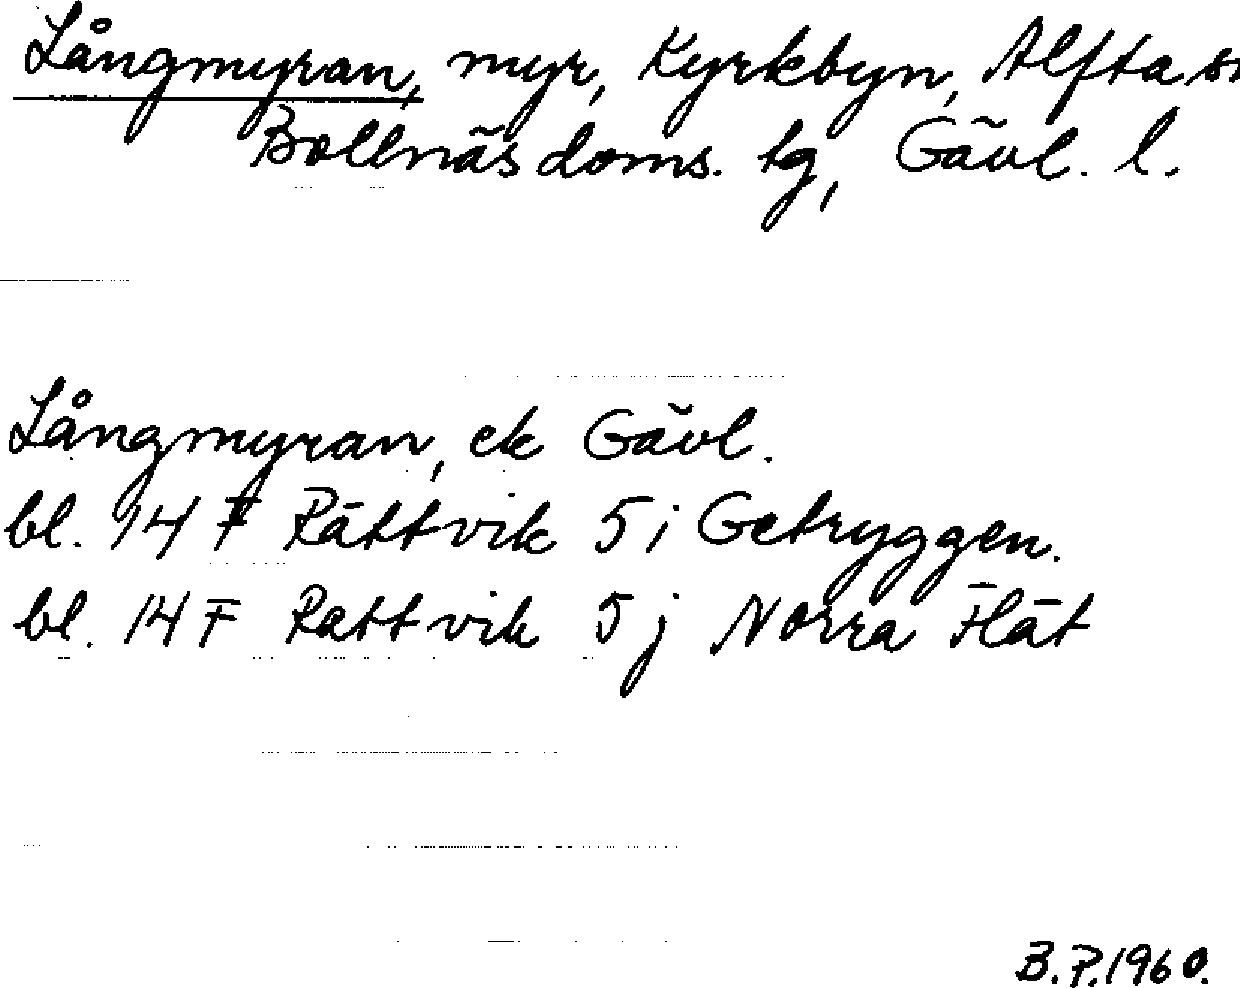 Långmyran, myr, Kyrkbyn, Alfta sn
Bollnäs doms. tg, Gävl. l.
Långmyran, ek Gävl.
bl. 14 F Rättvik 5 i Getryggen.
bl. 14 F Rattvik 5 j Norra Flät
B.P. 1960.